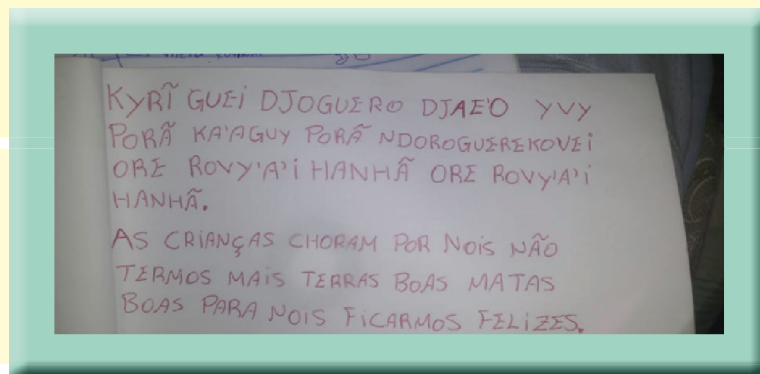 KYRĨ GUEI DJOGUERO DJAE'O YVY
PORÃ KA'AGUY PORÃ NDOROGUEREKOVEI
ORE ROVY'A'I HANHÃ ORE ROVY'A'I
HANHÃ.
AS CRIANÇAS CHORAM POR NOIS NÃO
TERMOS MAIS TERRAS BOAS MATAS
BOAS PARA NOIS FICARMOS FELIZES.